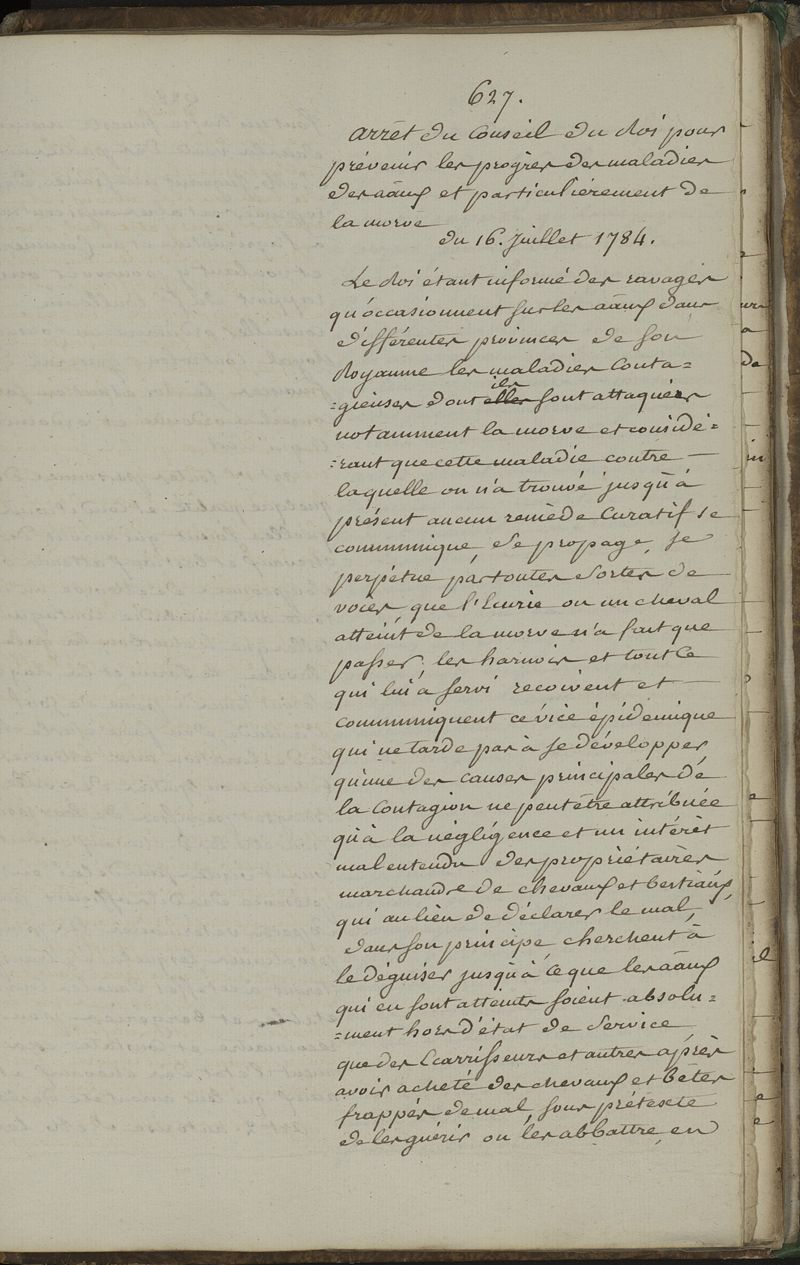 627.
Arrêt du Conseil du Roi pour
prévenir les progrès des maladies
des aāux et particulièrement de
la morve
du 16. Juillet 1784.
Le Roi étant informé des ravages
qu'occasionnent sur les aāux dans
différentes provinces de son
Royaume les maladies conta=
=gieuses dont ils sont attaqués
notamment la morve et considé=
=rant que cette maladie contre
laquelle on n'a trouvé jusqu'à
présent aucun remède curatif se
communique, se propage, se
perpétue par toutes sortes de
voies que l'Ecurie ou un cheval
atteint de la morve n'a fait que
passer, les harnois et tout ce
qui lui a servi recoivent et
communiquent ce vice épidemique
qui ne tarde pas à se développer
qu'une des causes principales de
la contagion ne peut être attribuée
qu'à la négligence et un intérêt
mal entendu des propriétaires
marchands de chevaux et bestiaux,
qui au lieu de déclarer le mal,
dans son principe cherchent à
le déguiser jusqu'à ce que les aāux
qui en sont atteints soient absolu=
=ment hors d'état de service
que des Ecarrisseurs et autres après
avoir acheté des chevaux et bêtes
frappés de mal sous prétexte
de les guérir ou les abbattre, en